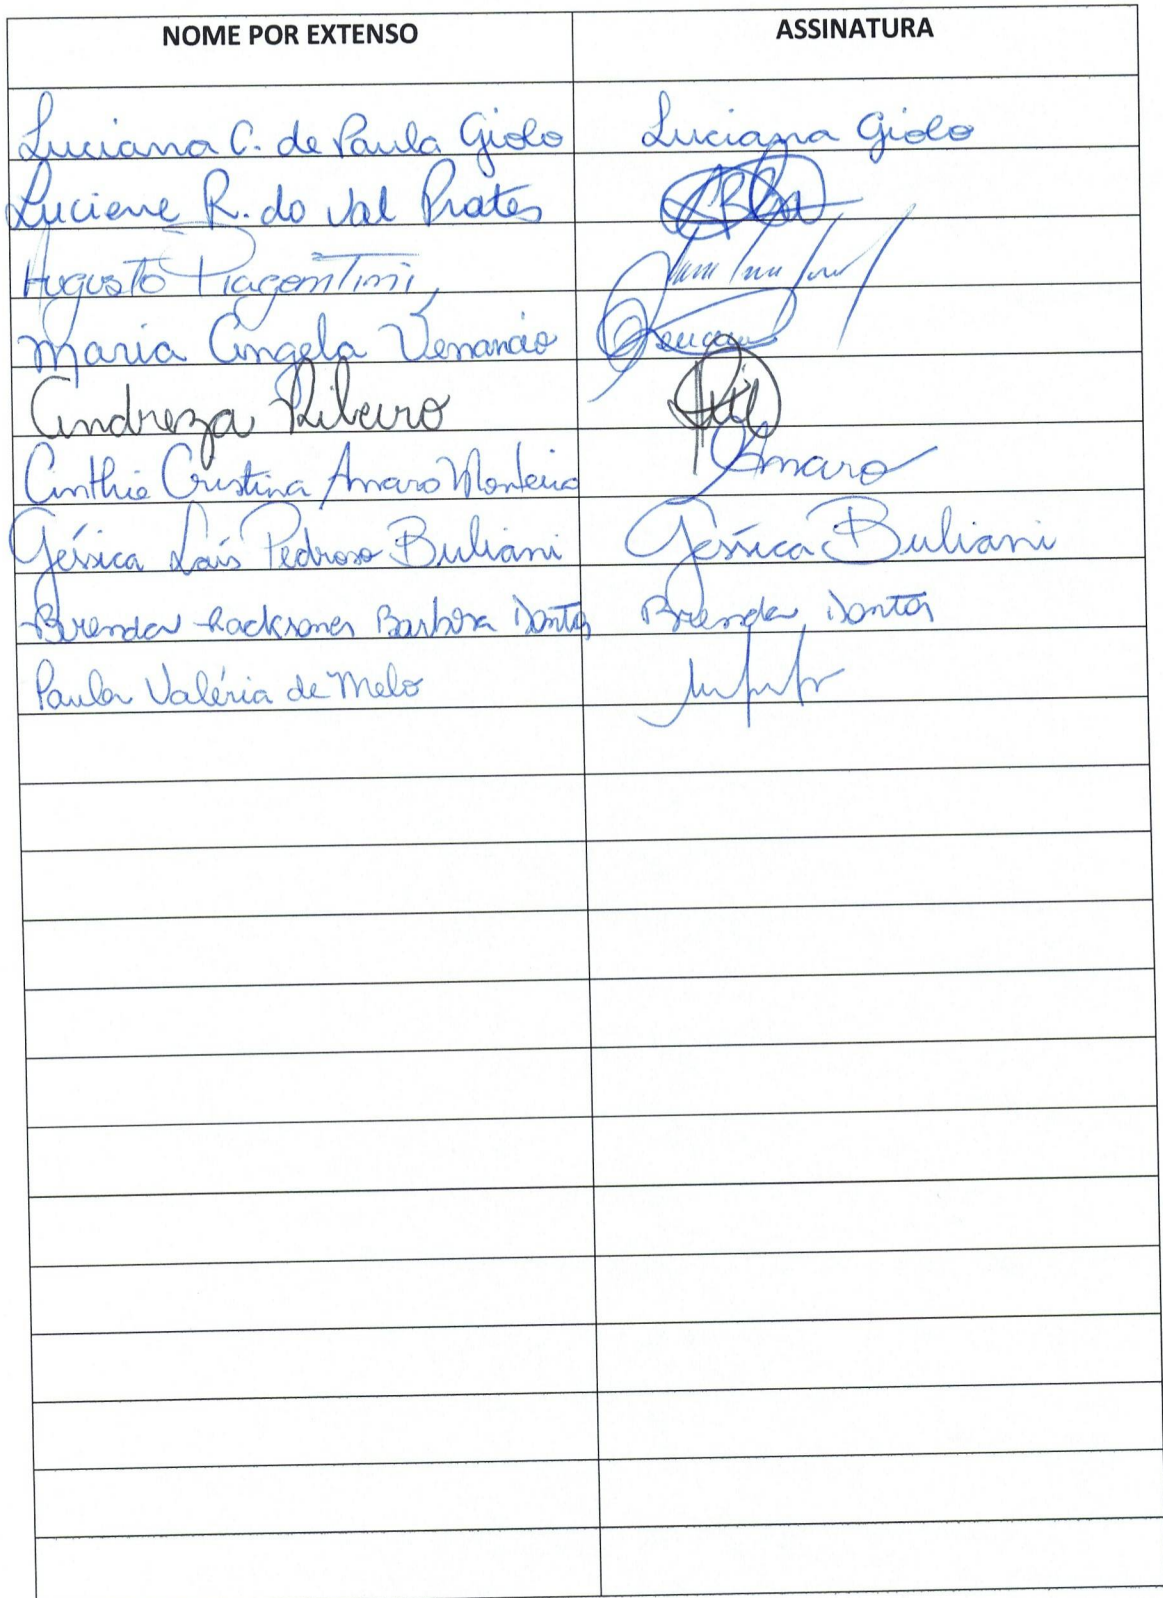 NOME POR EXTENSO ASSINATURA
Luciana C. de Paula Giolo Luciana Giolo
Luciene R. do Val Prates
Augusto Piagentini
Maria Angela Venancio
Andreza Ribeiro
Cinthia Cristina Amaro Monteiro Amaro
Géssica Laís Pedroso Buliani Géssica Buliani
Brenda Barbosa Santos Brenda Santos
Paula Valéria de Melo